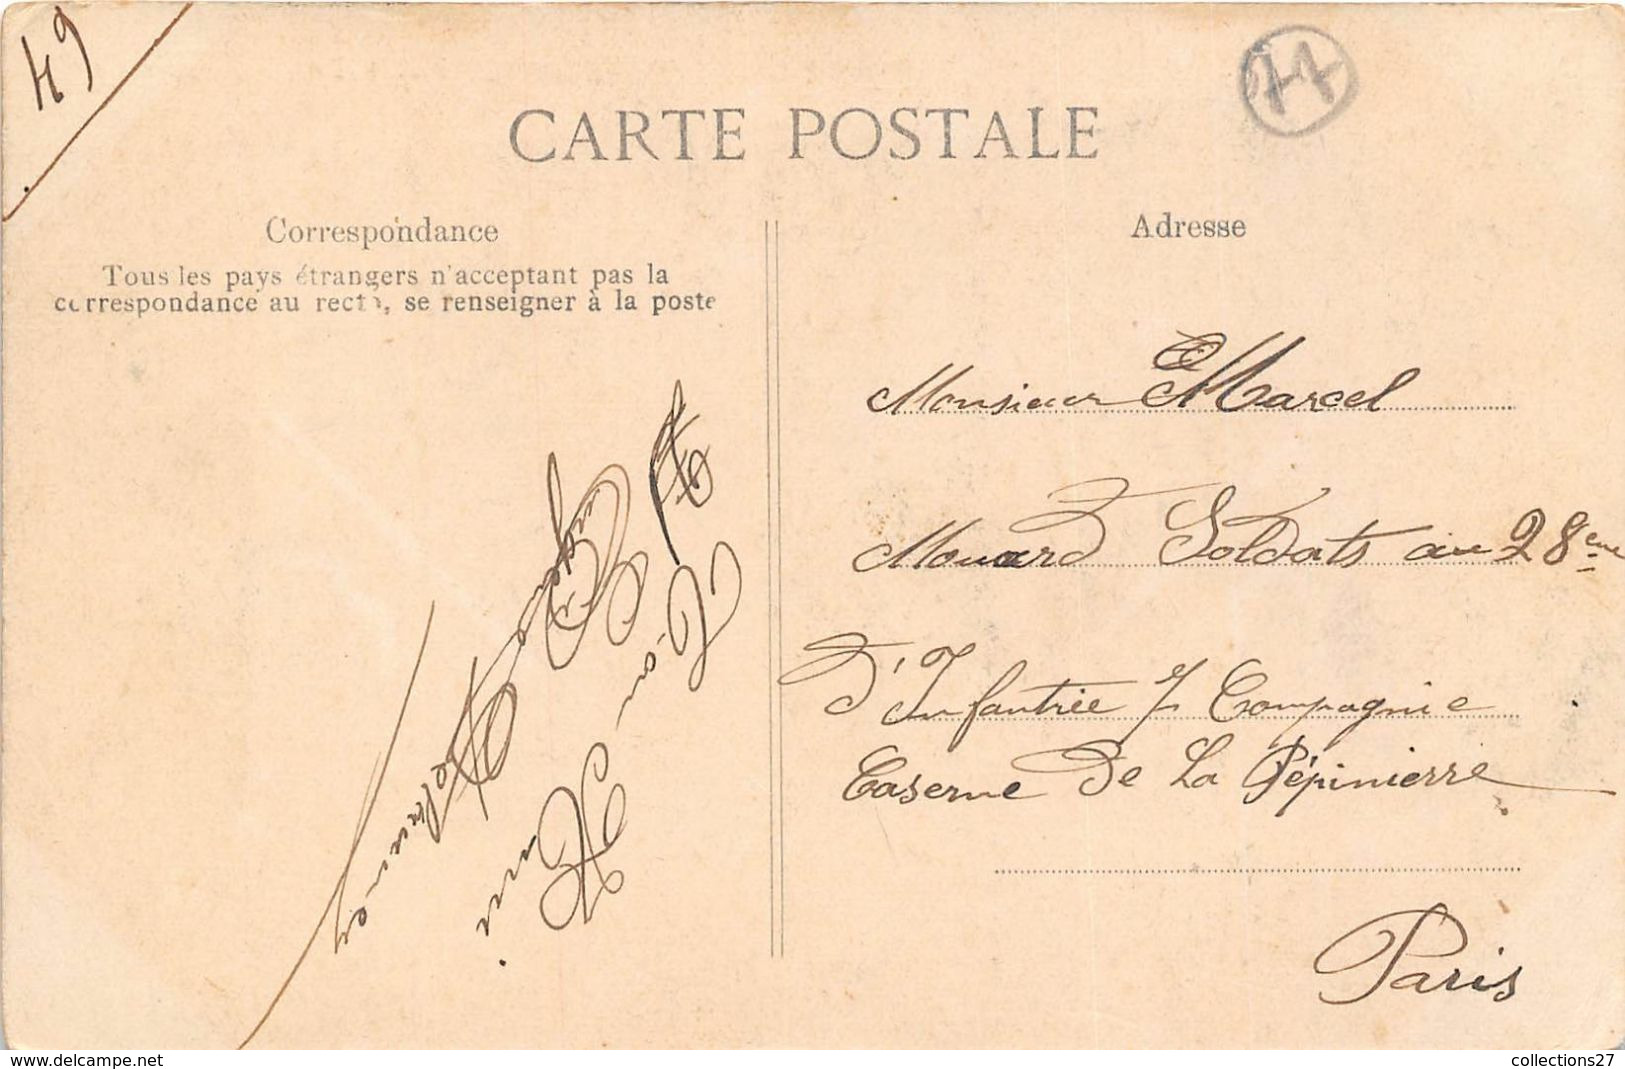 49
CARTE POSTALE
Correspondance
Tous les pays étrangers n'acceptant pas la
correspondance au recto, se renseigner à la poste
Adresse
Monsieur Marcel
Mouard Soldats au 28eme
D'Infantrie 7 Compagnie
Caserne De La Pépinierre
Paris
www.delcampe.net
collections27